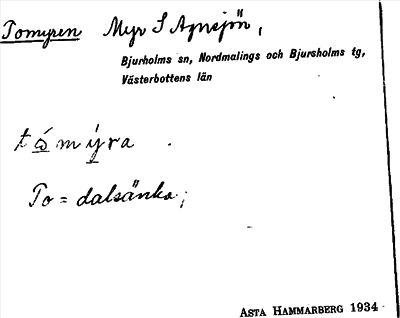 Tomyren Myr S Agnsjön,
Bjurholms sn, Nordmalings och Bjursholms tg,
Västerbottens län
tómýra.
To = dalsänka;
ASTA HAMMARBERG 1934